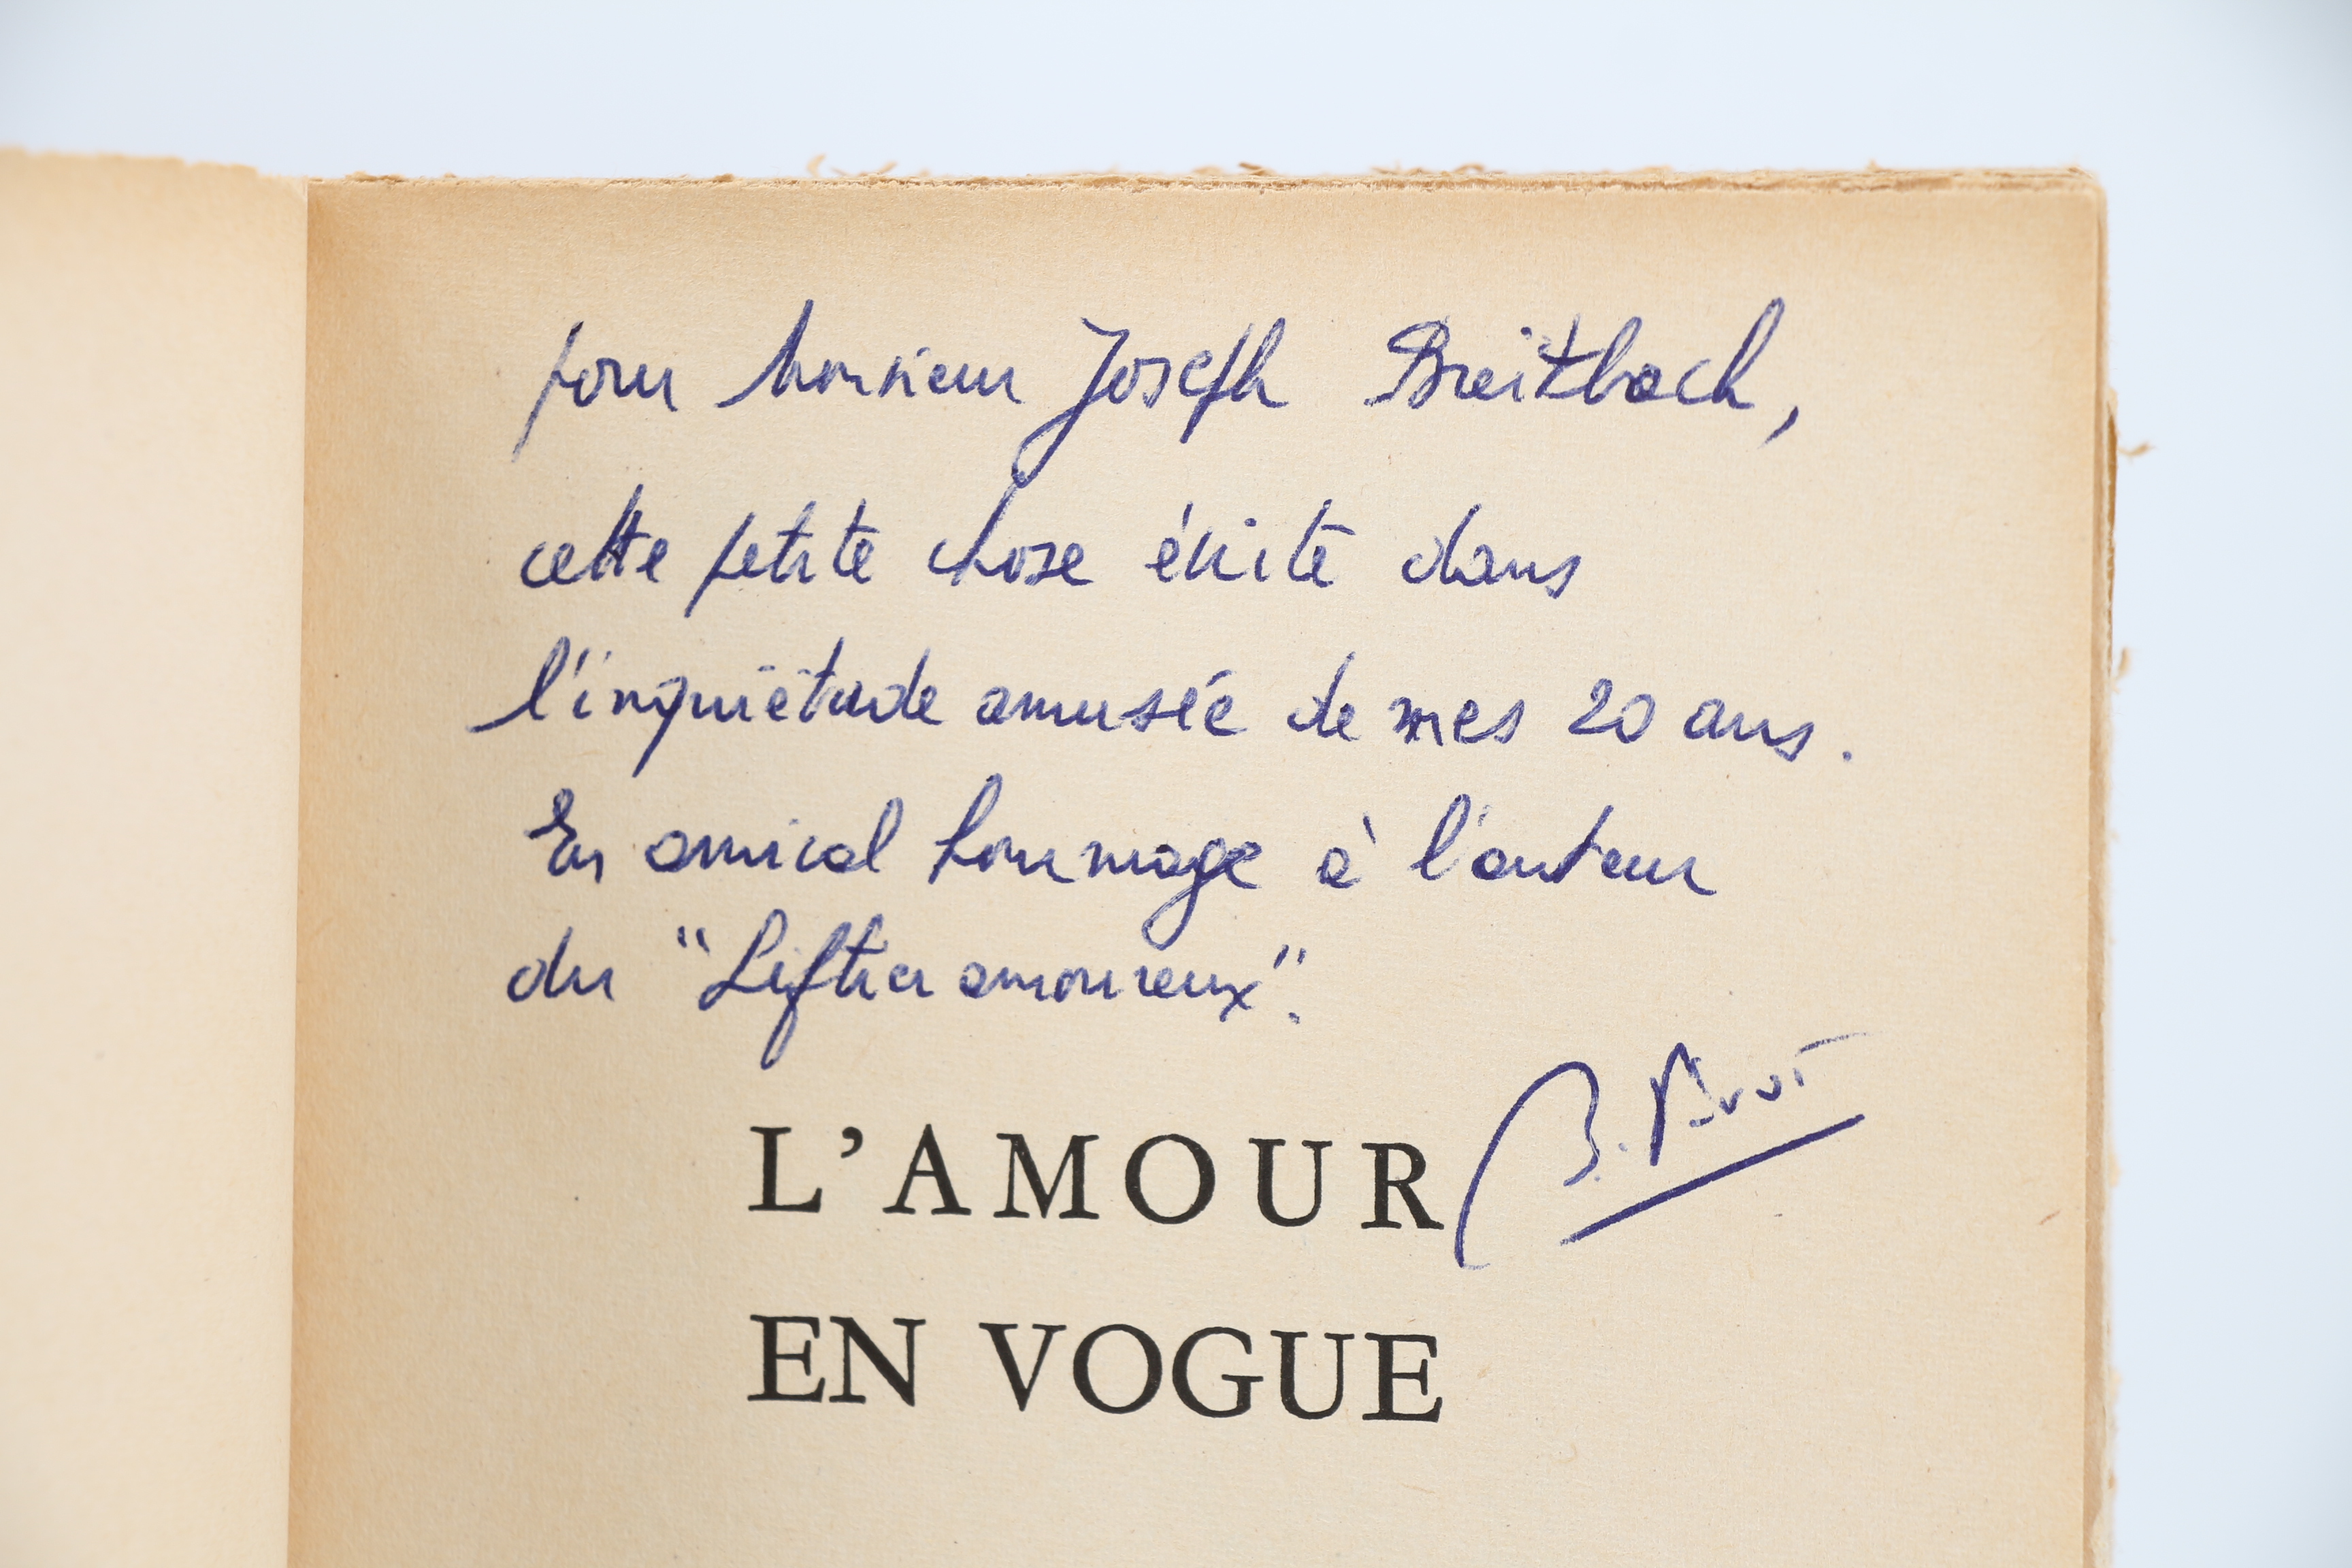 pour Monsieur Joseph Breitbach,
cette petite chose écrite dans
l'inquiétude amusée de mes 20 ans.
En amical hommage à l'auteur
du "Liftier amoureux".
B. Pivot
L'AMOUR
EN VOGUE